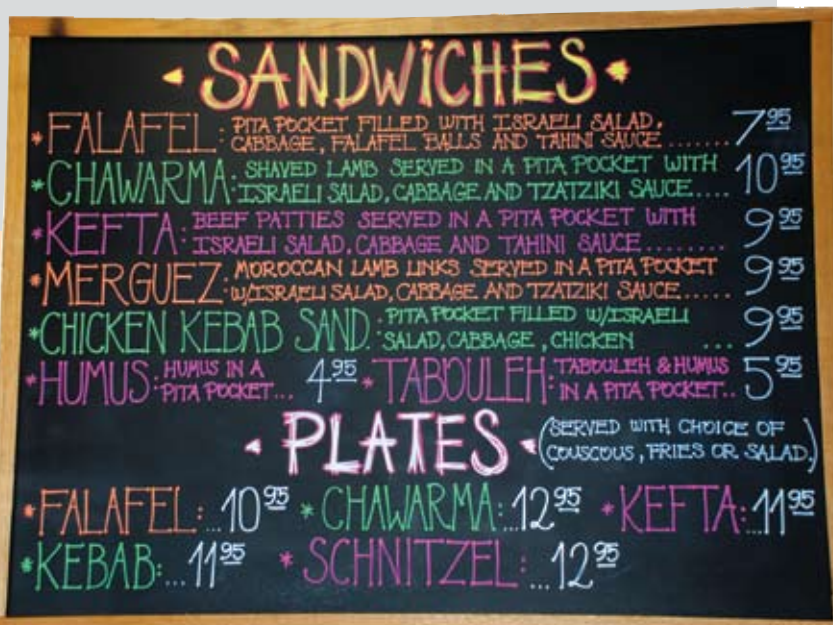 SANDWICHES
*FALAFEL: PITA POCKET FILLED WITH ISRAELI SALAD,
CABBAGE, FALAFEL BALLS AND TAHINI SAUCE ....... 7 95
*CHAWARMA: SHAVED LAMB SERVED IN A PITA POCKET WITH
ISRAELI SALAD, CABBAGE AND TZATZIKI SAUCE.... 10 95
*KEFTA: BEEF PATTIES SERVED IN A PITA POCKET WITH
ISRAELI SALAD, CABBAGE AND TAHINI SAUCE........ 9 95
*MERGUEZ: MOROCCAN LAMB LINKS SERVED IN A PITA POCKET
W/ISRAELI SALAD, CABBAGE AND TZATZIKI SAUCE...... 9 95
*CHICKEN KEBAB SAND.: PITA POCKET FILLED W/ISRAELI
SALAD, CABBAGE, CHICKEN ... 9 95
*HUMUS: HUMUS IN A
PITA POCKET... 4 95
*TABOULEH: TABOULEH & HUMUS
IN A PITA POCKET.. 5 95
PLATES
(SERVED WITH CHOICE OF
COUSCOUS, FRIES OR SALAD.)
*FALAFEL:...10 95 *CHAWARMA:...12 95 *KEFTA:...11 95
*KEBAB:...11 95 *SCHNITZEL:...12 95